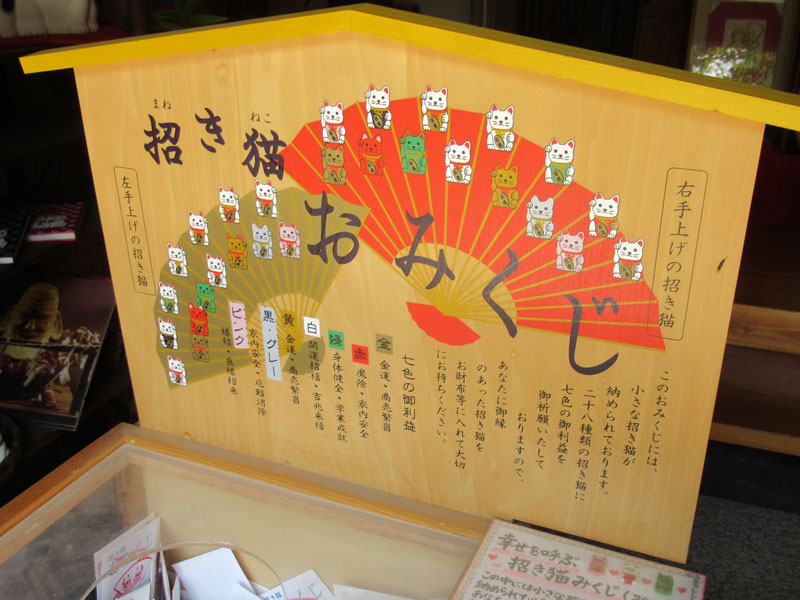 招き猫
まね
ねこ
おみくじ
右手上げの招き猫
左手上げの招き猫
このおみくじには、
小さな招き猫が
納められております。
二十八種類の招き猫に
七色の御利益を
御祈願いたして
おりますので、
あなたに御縁
のあった招き猫を
お財布等に入れて大切
にお持ちください。
七色の御利益
金 金運・商売繁昌
赤 魔除・家内安全
緑 身体健全・学業成就
白 開運招福・吉兆来福
黄 金運・商売繁昌
黒・グレー 家内安全・厄難消除
ピンク 縁結・良縁招来
幸せを呼ぶ
招き猫みくじ
この中には小さな